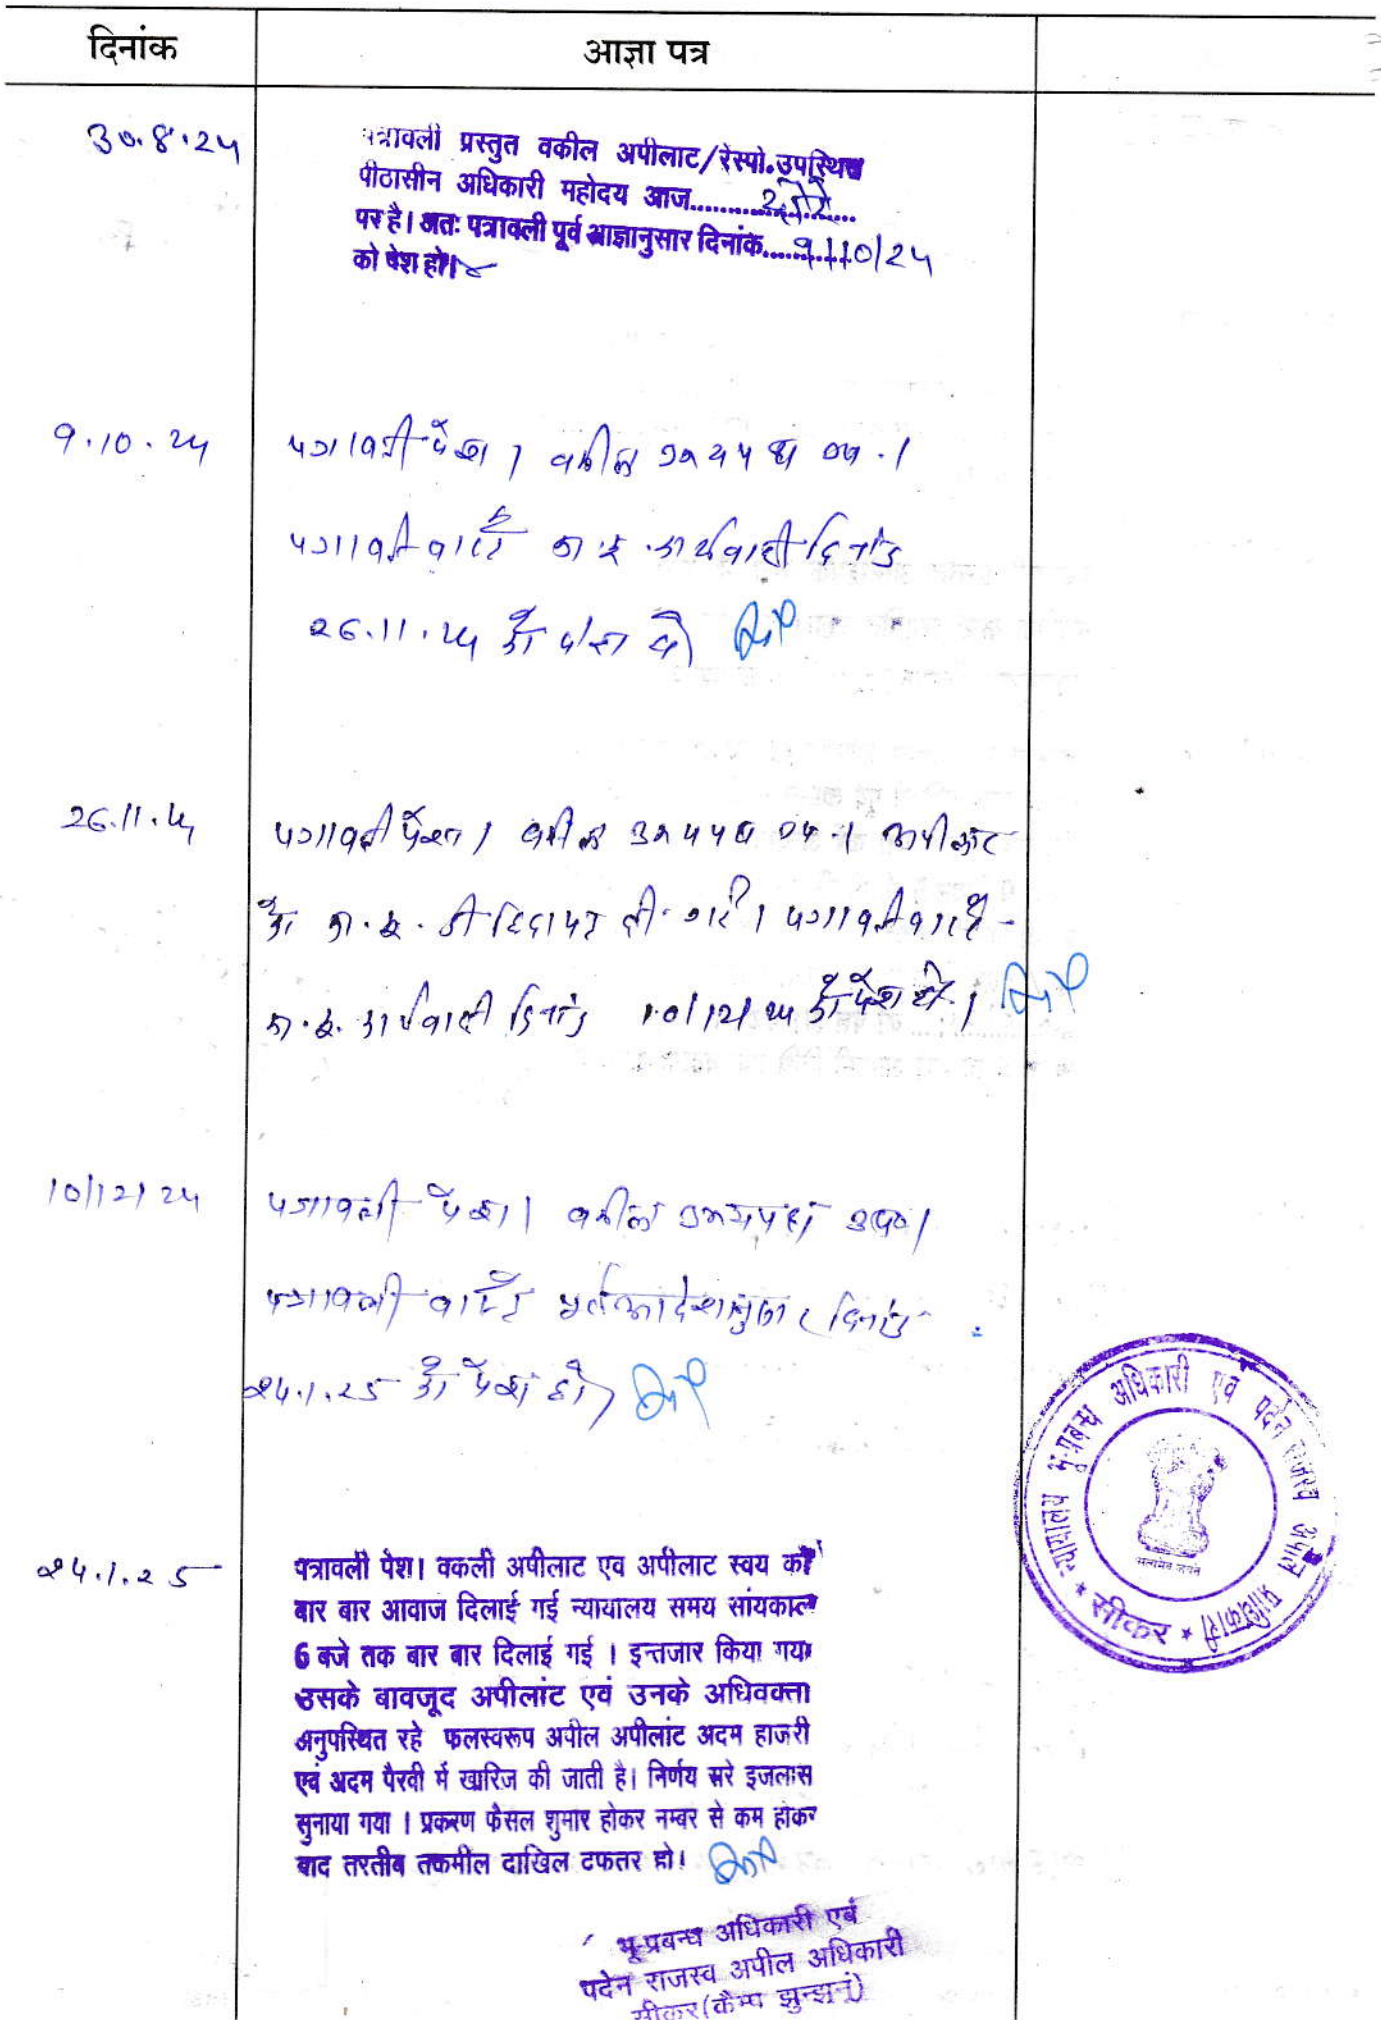 दिनांक
आज्ञा पत्र
30.8.24
पत्रावली प्रस्तुत वकील अपीलाट/रेस्पो.उपस्थित
पीठासीन अधिकारी महोदय आज....................
पर है। अतः पत्रावली पूर्व आज्ञानुसार दिनांक 9/10/24
को पेश हो।
9.10.24
पत्रावली पेश। वकील उभयपक्ष उप.।
पत्रावली वास्ते का.इ. कार्यवाही दिनांक
26.11.24 को पेश हो
26.11.24
पत्रावली पेश। वकील उभयपक्ष उप.। अपीलांट
को का.इ. की हिदायत दी गई। पत्रावली वास्ते
का.इ. कार्यवाही दिनांक 10/12/24 को पेश हो।
10/12/24
पत्रावली पेश। वकील उभयपक्ष उप०।
पत्रावली वास्ते पूर्व आदेशानुसार दिनांक
24.1.25 को पेश हो।
24.1.25
पत्रावली पेश। वकली अपीलाट एव अपीलाट स्वय को
बार बार आवाज दिलाई गई न्यायालय समय सांयकाल
6 बजे तक बार बार दिलाई गई । इन्तजार किया गया
उसके बावजूद अपीलांट एवं उनके अधिवक्ता
अनुपस्थित रहे फलस्वरूप अपील अपीलांट अदम हाजरी
एवं अदम पैरवी में खारिज की जाती है। निर्णय सरे इजलास
सुनाया गया । प्रकरण फैसल शुमार होकर नम्बर से कम होकर
बाद तरतीब तकमील दाखिल टफतर हो।
भू-प्रबन्ध अधिकारी एवं
पदेन राजस्व अपील अधिकारी
सीकर(कैम्प झुन्झुनूं)
न्यायालय भू-प्रबन्ध अधिकारी एवं पदेन राजस्व अपील प्राधिकारी
* सीकर *
सत्यमेव जयते